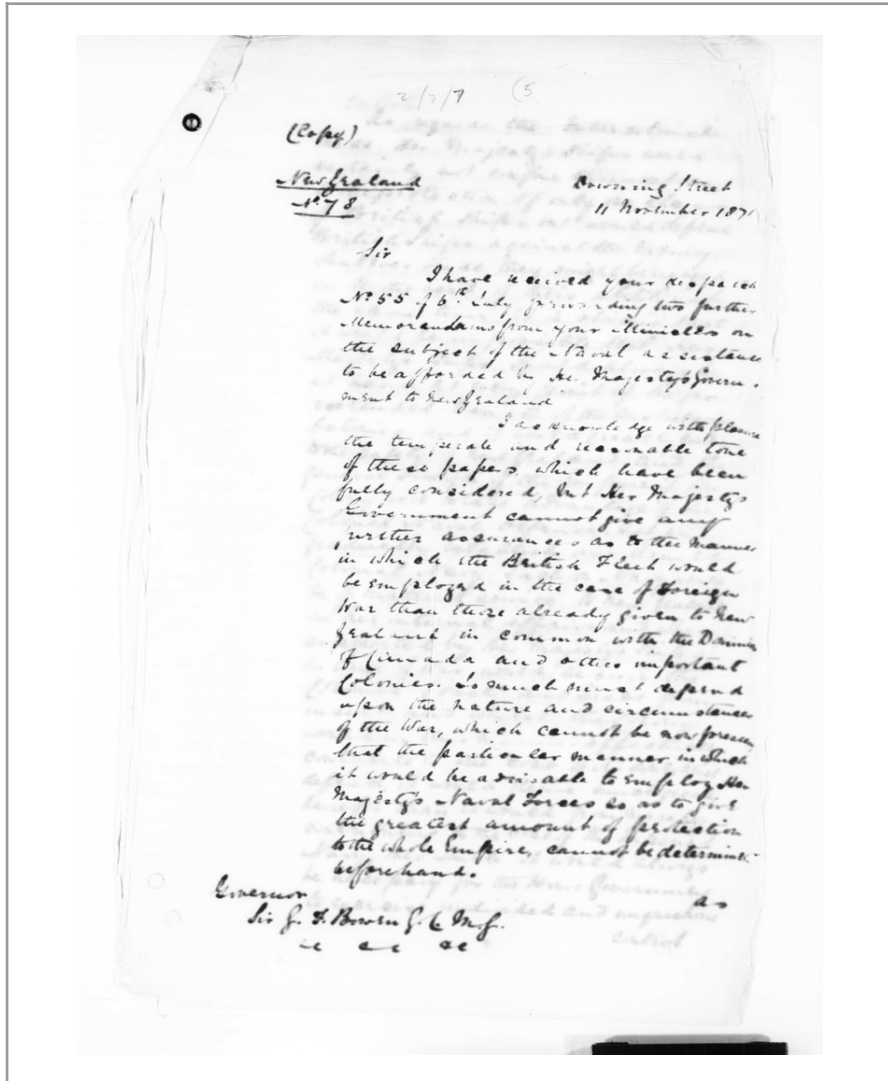 2/2/7 (5
(Copy)
New Zealand
No. 78
Downing Street
11 November 1871
Sir
I have received your despatch
No 55 of 6th July forwarding two further
Memorandums from your Ministers on
the subject of the Naval assistance
to be afforded by He. Majesty's Govern-
ment to New Zealand
I acknowledge with pleasure
the temperate and reasonable tone
of these papers, which have been
fully considered, but Her Majesty's
Government cannot give any
further assurances as to the manner
in which the British Fleet would
be employed in the case of Foreign
War than those already given to New
Zealand in common with the Dominion
of Canada and other important
Colonies. So much must depend
upon the nature and circumstances
of the War, which cannot be now foreseen
that the particular manner in which
it would be advisable to employ Her
Majesty's Naval Forces so as to give
the greatest amount of protection
to the whole Empire, cannot be determined
beforehand.
as
Governor
Sir G. F. Bowen G.C.M.G.